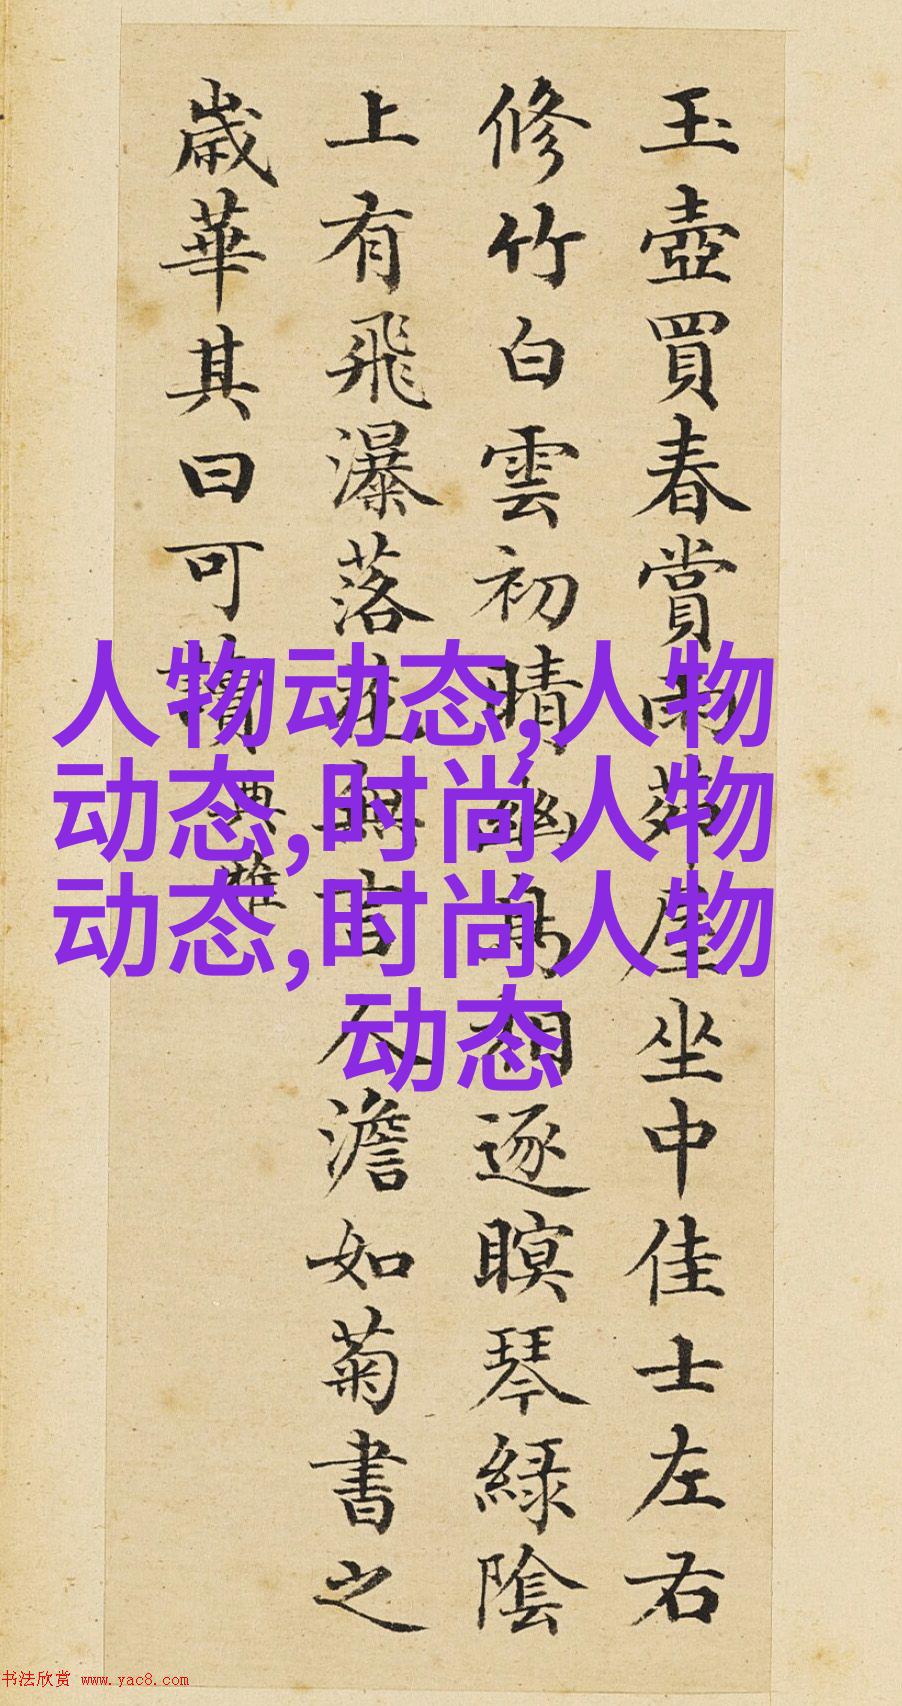 玉壺買春賞雨茆屋坐中佳士左右
修竹白雲初晴幽鳥相逐瞑琴綠陰
上有飛瀑落花無言人澹如菊書之
歲華其曰可讀
典雅
人物动态,人物
动态,时尚人物
动态,时尚人物
动态
书法欣赏 www.yac8.com